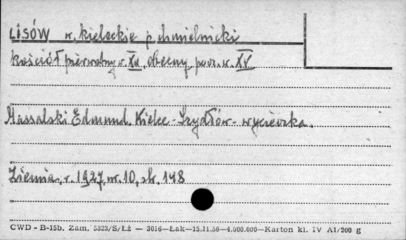 LISÓW w. kieleckie p. chmielnicki
kościół pierwotny w. XII, obecny pows. w. XV
Massalski Edmund. Kielce - Szydłów - wycieczka.
Ziemia, r. 1927, nr. 10, str. 148
CWD - B-15b. Zam. 5323/S/Łż — 3016—Łak—15.11.56—4.000.000—Karton kl. IV A1/200 g